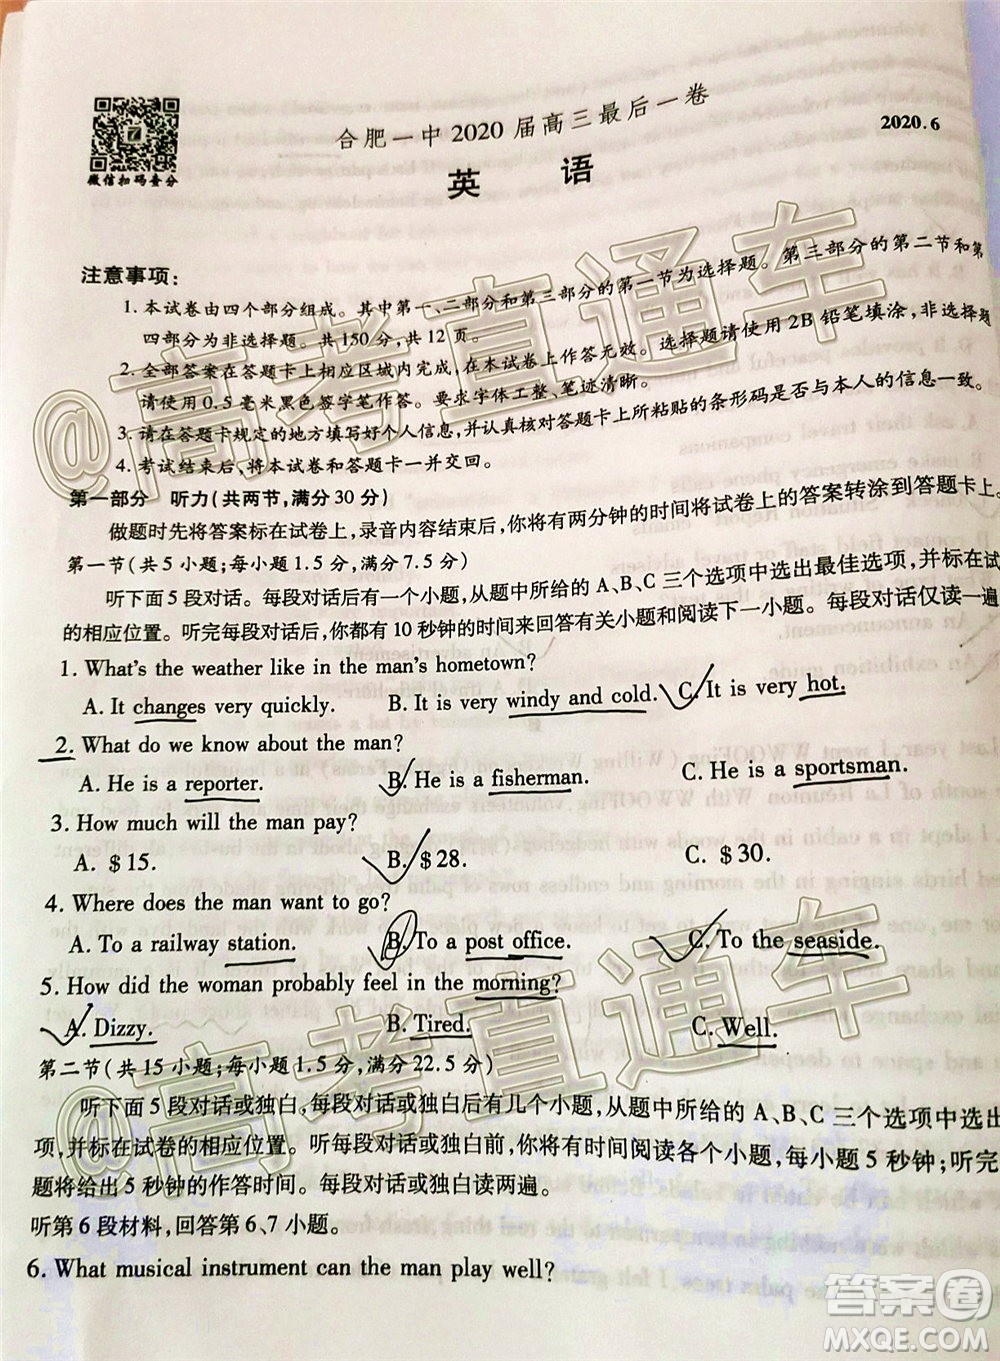 合肥一中2020届高三最后一卷
2020.6
微信扫码查分
英 语
注意事项:
1. 本试卷由四个部分组成。其中第一、二部分和第三部分的第一节为选择题。第三部分的第二节和第
四部分为非选择题。共150分,共12页。
2. 全部答案在答题卡上相应区域内完成,在本试卷上作答无效。选择题请使用2B铅笔填涂,非选择
请使用0.5毫米黑色签字笔作答。要求字体工整、笔迹清晰。
3. 请在答题卡规定的地方填写好个人信息,并认真核对答题卡上所粘贴的条形码是否与本人的信息一致。
4. 考试结束后,将本试卷和答题卡一并交回。
第一部分 听力(共两节,满分30分)
做题时先将答案标在试卷上,录音内容结束后,你将有两分钟的时间将试卷上的答案转涂到答题卡上。
第一节(共5小题;每小题1.5分,满分7.5分)
听下面5段对话。每段对话后有一个小题,从题中所给的A、B、C三个选项中选出最佳选项,并标在试
的相应位置。听完每段对话后,你都有10秒钟的时间来回答有关小题和阅读下一小题。每段对话仅读一遍
1. What's the weather like in the man's hometown?
A. It changes very quickly. B. It is very windy and cold. C. It is very hot.
2. What do we know about the man?
A. He is a reporter. B. He is a fisherman. C. He is a sportsman.
3. How much will the man pay?
A. $15. B. $28. C. $30.
4. Where does the man want to go?
A. To a railway station. B. To a post office. C. To the seaside.
5. How did the woman probably feel in the morning?
A. Dizzy. B. Tired. C. Well.
第二节(共15小题;每小题1.5分,满分22.5分)
听下面5段对话或独白,每段对话或独白后有几个小题,从题中所给的A、B、C三个选项中选出
项,并标在试卷的相应位置。听每段对话或独白前,你将有时间阅读各个小题,每小题5秒钟;听完
题将给出5秒钟的作答时间。每段对话或独白读两遍。
听第6段材料,回答第6、7小题。
6. What musical instrument can the man play well?
@高考直通车
@高考直通车
答案圈
MXQE.COM